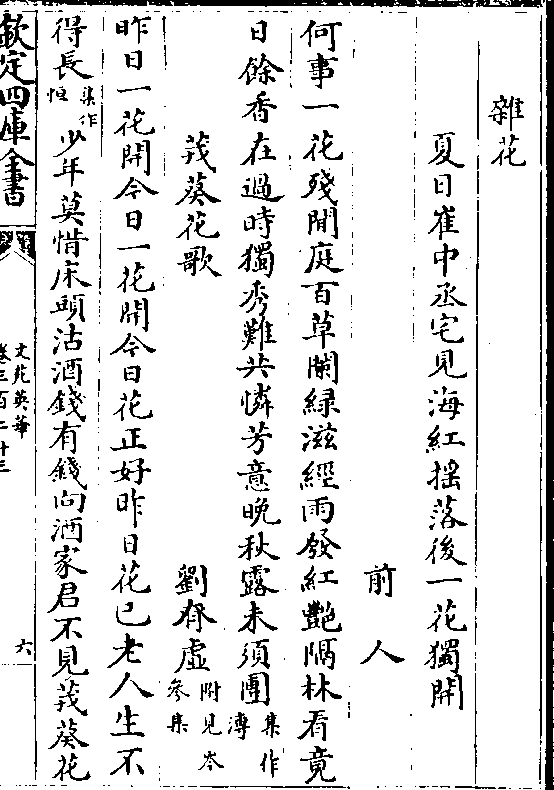 雜花
夏日崔中丞宅見海紅搖落後一花獨開
前人
何事一花殘閒庭百草闌綠滋經雨發紅艷隔林看竟
日餘香在過時獨秀難共憐芳意晚秋露未須團集作漙
茙葵花歌
劉眘虛附見岑參集
昨日一花開今日一花開今日花正好昨日花已老人生不
得長集作恒少年莫惜床頭沽酒錢有錢向酒家君不見茙葵花
欽定四庫全書
文苑英華
卷三百二十三
六